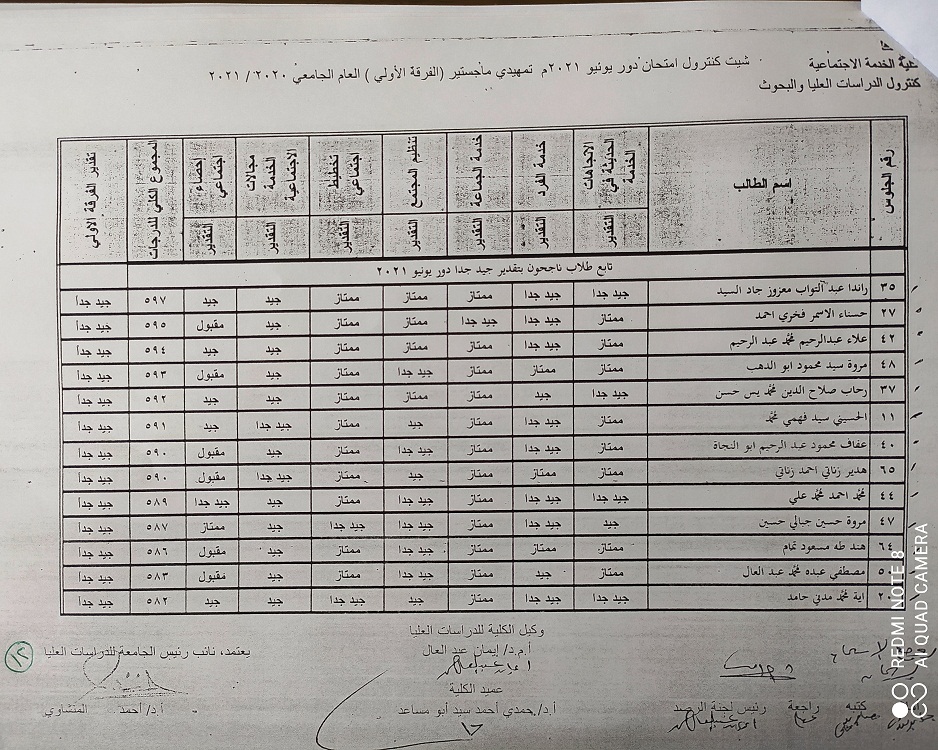 كلية الخدمة الاجتماعية
شيت كنترول امتحان دور يونيو ٢٠٢١م تمهيدي ماجستير (الفرقة الأولي ) العام الجامعي ٢٠٢٠ / ٢٠٢١
كنترول الدراسات العليا والبحوث
رقم الجلوس اسم الطالب الاتجاهات الحديثة في الخدمة خدمة الفرد خدمة الجماعة تنظيم المجتمع تخطيط اجتماعي مجالات الخدمة الاجتماعية إحصاء اجتماعي المجموع الكلي للدرجات تقدير الفرقة الاولي
التقدير التقدير التقدير التقدير التقدير التقدير التقدير
تابع طلاب ناجحون بتقدير جيد جدا دور يونيو ٢٠٢١
٣٥ راندا عبد التواب معزوز جاد السيد جيد جدا جيد جدا ممتاز ممتاز ممتاز جيد جيد ٥٩٧ جيد جدا
٢٧ حسناء الاسمر فخري احمد ممتاز جيد جدا جيد جدا ممتاز ممتاز جيد مقبول ٥٩٥ جيد جدا
٤٢ علاء عبدالرحيم محمد عبد الرحيم ممتاز جيد جدا ممتاز ممتاز ممتاز جيد جيد ٥٩٤ جيد جدا
٤٨ مروة سيد محمود ابو الدهب ممتاز ممتاز ممتاز جيد جدا ممتاز جيد مقبول ٥٩٣ جيد جدا
٣٧ رحاب صلاح الدين محمد يس حسن جيد جدا جيد ممتاز ممتاز ممتاز جيد جيد ٥٩٢ جيد جدا
١١ الحسيني سيد فهمي محمد ممتاز جيد جدا ممتاز جيد ممتاز جيد جدا جيد ٥٩١ جيد جدا
٤٠ عفاف محمود عبد الرحيم ابو النجاة ممتاز جيد جدا ممتاز جيد جدا ممتاز جيد مقبول ٥٩٠ جيد جدا
٦٥ هدير زناتي احمد زناتي ممتاز ممتاز ممتاز جيد ممتاز جيد جدا مقبول ٥٩٠ جيد جدا
٤٤ محمد احمد محمد علي جيد جدا جيد جدا ممتاز جيد جدا ممتاز جيد جيد جدا ٥٨٩ جيد جدا
٤٧ مروة حسين جبالي حسين جيد جيد جدا ممتاز جيد جدا جيد جدا جيد ممتاز ٥٨٧ جيد جدا
٦٤ هند طه مسعود تمام ممتاز ممتاز ممتاز جيد جدا ممتاز جيد مقبول ٥٨٦ جيد جدا
مصطفي عبده محمد عبد العال ممتاز جيد ممتاز جيد جدا ممتاز جيد مقبول ٥٨٣ جيد جدا
اية محمد مدني حامد جيد جدا جيد جدا ممتاز جيد جيد جدا جيد جيد ٥٨٢ جيد جدا
وكيل الكلية للدراسات العليا
أ.م.د/ إيمان عبد العال
يعتمد، نائب رئيس الجامعة للدراسات العليا
١٢
عميد الكلية
كتبه راجعة رئيس لجنة الرصد
أ.د/ حمدي أحمد سيد أبو مساعد
أ.د/ أحمد المنشاوي
REDMI NOTE 8
AI QUAD CAMERA